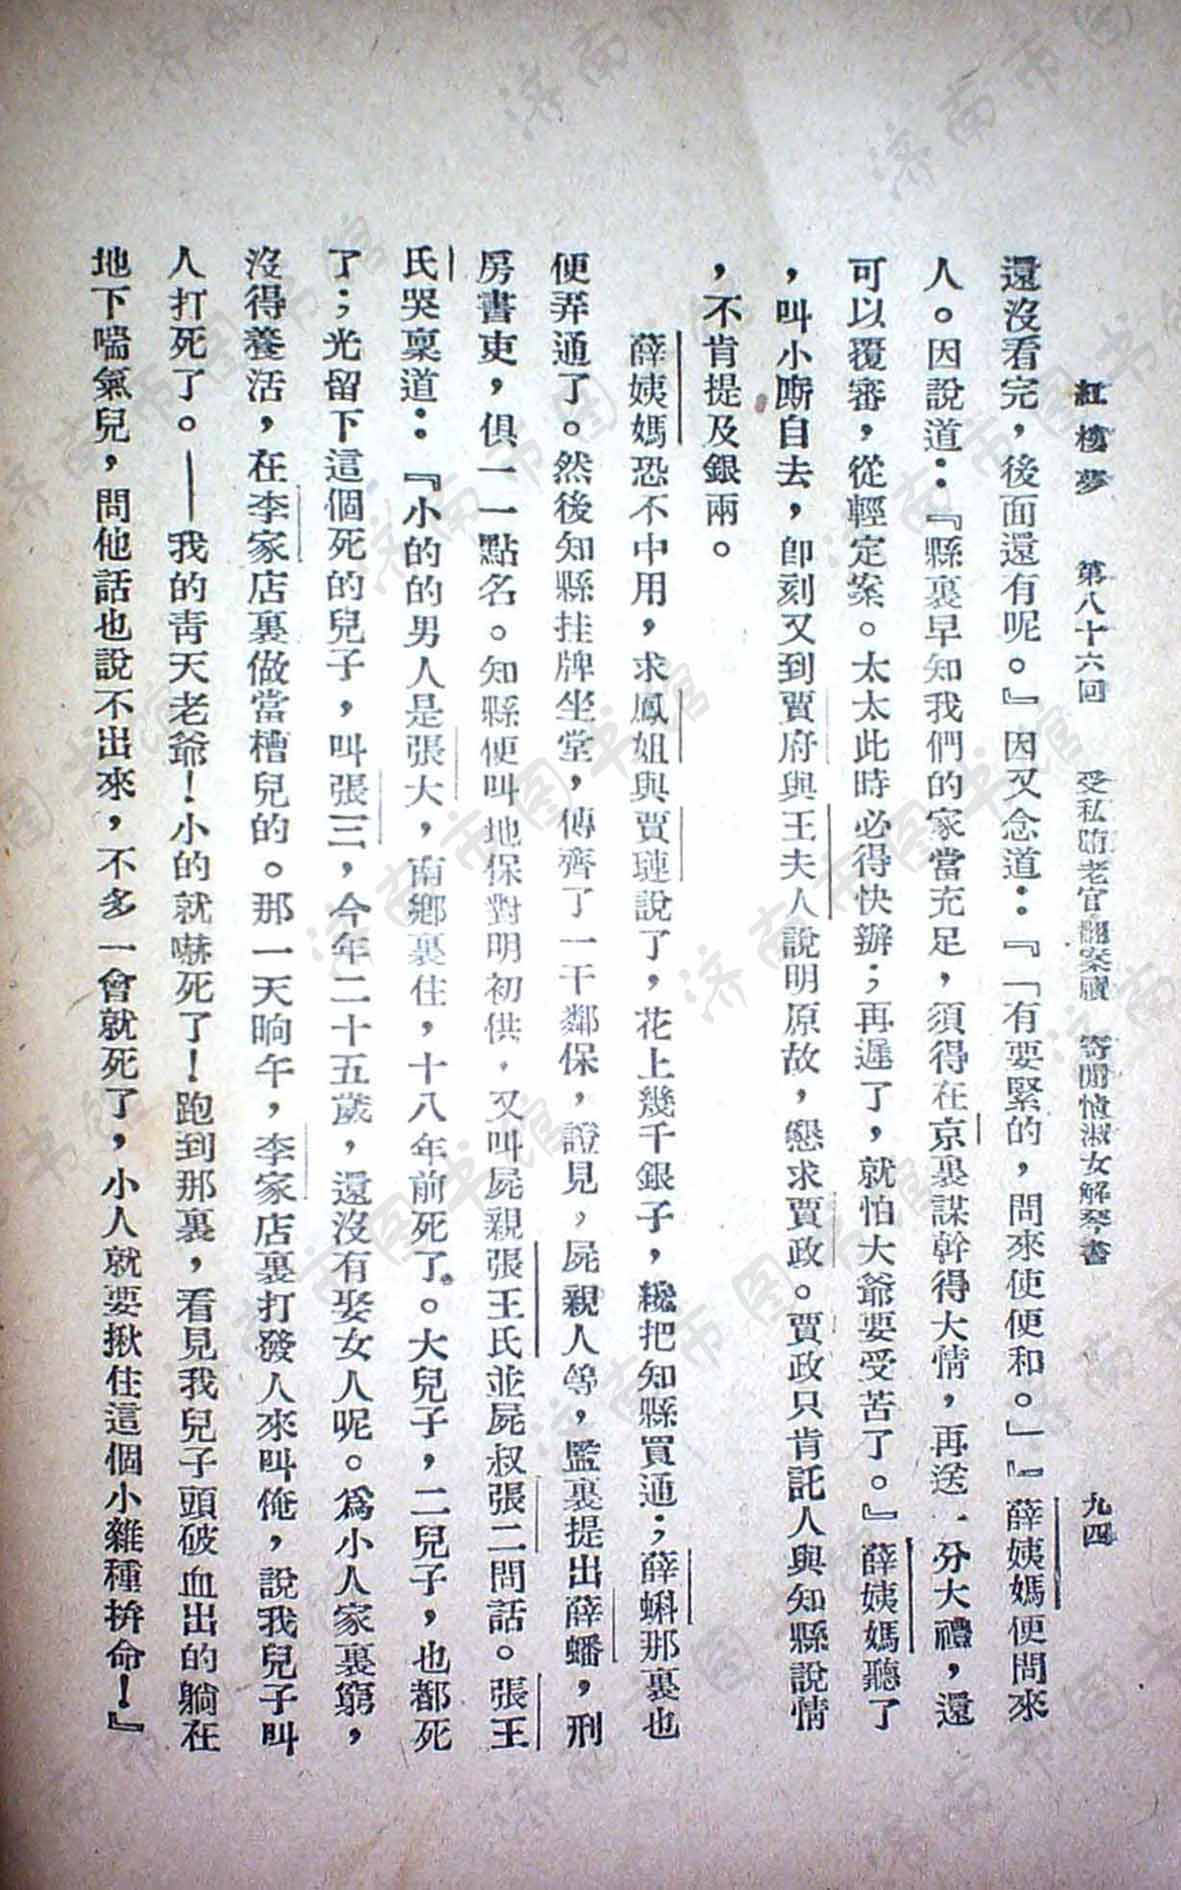 紅樓夢　第八十六回　受私賄老官翻案牘　寄閒情淑女解琴書　九四
還沒看完，後面還有呢。』因又念道：『「有要緊的，問來使便和。」』薛姨媽便問來
人。因說道：『縣裏早知我們的家當充足，須得在京裏謀幹得大情，再送一分大禮，還
可以覆審，從輕定案。太太此時必得快辦；再遲了，就怕大爺要受苦了。』薛姨媽聽了
，叫小廝自去，卽刻又到賈府與王夫人說明原故，懇求賈政。賈政只肯託人與知縣說情
，不肯提及銀兩。
薛姨媽恐不中用，求鳳姐與賈璉說了，花上幾千銀子，纔把知縣買通；薛蝌那裏也
便弄通了。然後知縣挂牌坐堂，傳齊了一干鄰保，證見，屍親人等，監裏提出薛蟠，刑
房書吏，俱一一點名。知縣便叫地保對明初供，又叫屍親張王氏並屍叔張二問話。張王
氏哭稟道：『小的的男人是張大，南鄉裏住，十八年前死了。大兒子，二兒子，也都死
了；光留下這個死的兒子，叫張三，今年二十五歲，還沒有娶女人呢。爲小人家裏窮，
沒得養活，在李家店裏做當槽兒的。那一天晌午，李家店裏打發人來叫俺，說我兒子叫
人打死了。——我的靑天老爺！小的就嚇死了！跑到那裏，看見我兒子頭破血出的躺在
地下喘氣兒，問他話也說不出來，不多一會就死了，小人就要揪住這個小雜種拚命！』
济南市图书馆